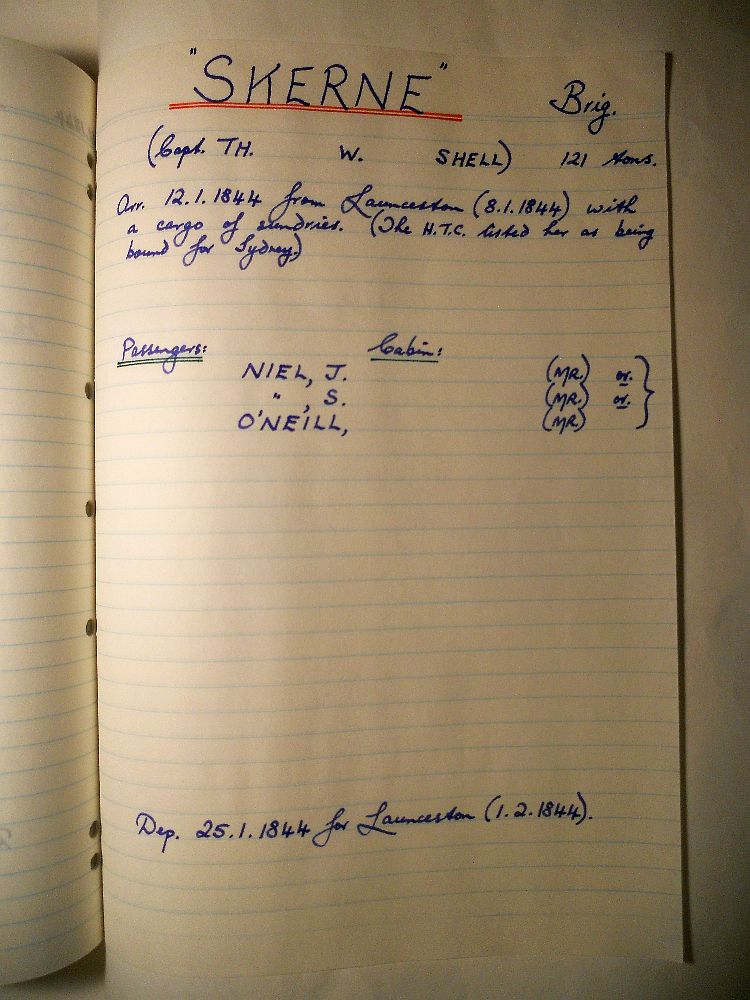 "SKERNE" Brig.
(Capt. TH. W. SHELL) 121 tons.
Arr. 12.1.1844 from Launceston (8.1.1844) with
a cargo of sundries. (The H.T.C. listed her as being
bound for Sydney.)
Passengers: Cabin:
NIEL, J. (MR.) or.
" , S. (MR.) or.
O'NEILL, (MR)
Dep. 25.1.1844 for Launceston (1.2.1844).